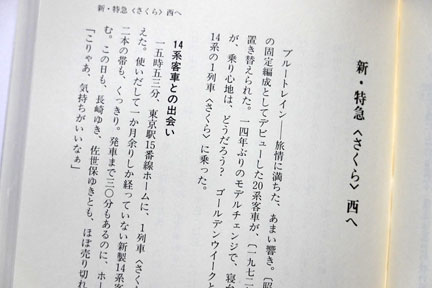 新・特急〈さくら〉西へ
新・特急〈さくら〉西へ
ブルートレイン――旅情に満ちた、あまい響き。〔昭
の固定編成としてデビューした20系客車が、〔一九七二
置き替えられた。一四年ぶりのモデルチェンジで、寝台
が、乗り心地は、どうだろう？　ゴールデンウイークと
14系の1列車〈さくら〉に乗った。
14系客車との出会い
一五時五三分、東京駅15番線ホームに、1列車〈さくら
えた。使いだして一か月余りしか経っていない新製14系客
二本の帯も、くっきり。発車まで三〇分もあるのに、ホー
む。この日も、長崎ゆき、佐世保ゆきとも、ほぼ売り切れ
「こりゃあ、気持ちがいいなぁ」